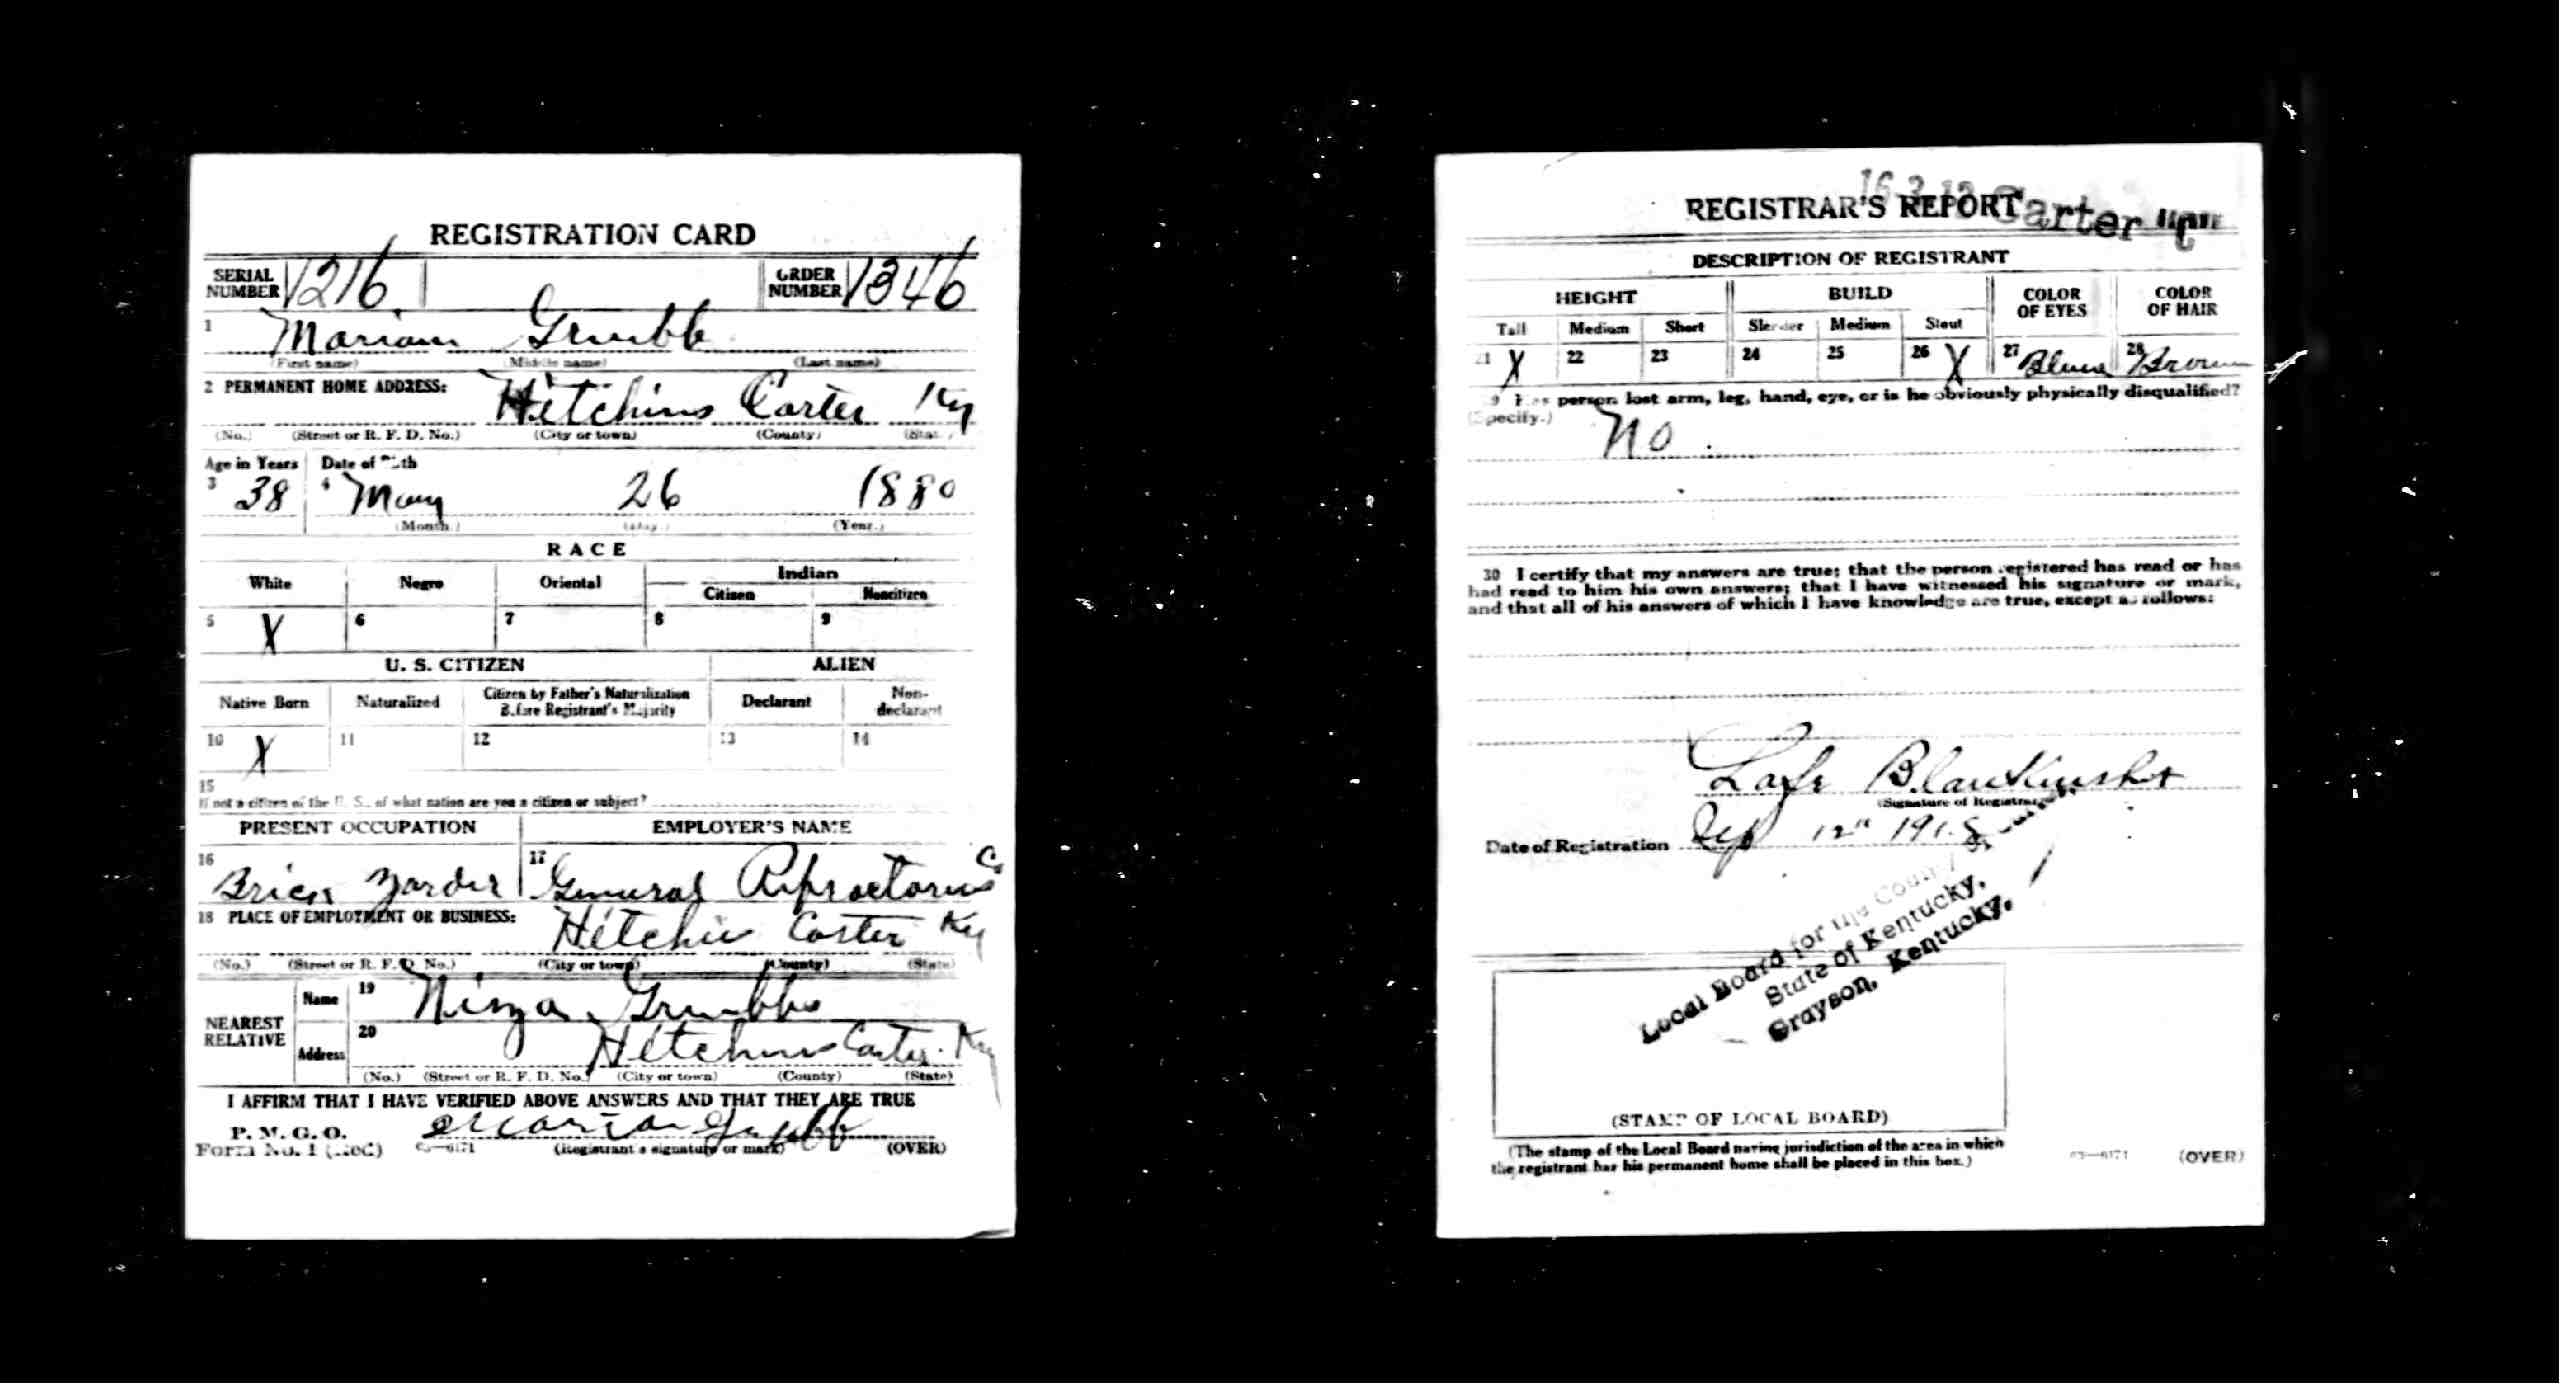 REGISTRATION CARD
SERIAL NUMBER 1216 ORDER NUMBER 1346
1 Marion Grubb
(First name) (Middle name) (Last name)
2 PERMANENT HOME ADDRESS: Hitchins Carter Ky
(No.) (Street or R. F. D. No.) (City or town) (County) (State)
Age in Years Date of Birth
3 38 4 May 26 1880
(Month.) (Day.) (Year.)
RACE
White Negro Oriental Indian
Citizen Noncitizen
5 X 6 7 8 9
U. S. CITIZEN ALIEN
Native Born Naturalized Citizen by Father's Naturalization Before Registrant's Majority Declarant Non-declarant
10 X 11 12 13 14
15
If not a citizen of the U. S., of what nation are you a citizen or subject?
PRESENT OCCUPATION EMPLOYER'S NAME
16 Brick Yarder 17 General Refractories Co
18 PLACE OF EMPLOYMENT OR BUSINESS: Hitchins Carter Ky
(No.) (Street or R. F. D. No.) (City or town) (County) (State)
NEAREST RELATIVE
Name 19 Grubbs
Address 20 Hitchins Carter Ky
(No.) (Street or R. F. D. No.) (City or town) (County) (State)
I AFFIRM THAT I HAVE VERIFIED ABOVE ANSWERS AND THAT THEY ARE TRUE
P. M. G. O.
Form No. 1 (Red) 03—6171 Marion Grubb
(Registrant's signature or mark) (OVER)
REGISTRAR'S REPORT Carter "C"
DESCRIPTION OF REGISTRANT
HEIGHT BUILD COLOR OF EYES COLOR OF HAIR
Tall Medium Short Slender Medium Stout
21 X 22 23 24 25 26 X 27 Blue 28 Brown
29 Has person lost arm, leg, hand, eye, or is he obviously physically disqualified?
(Specify.) No
30 I certify that my answers are true; that the person registered has read or has
had read to him his own answers; that I have witnessed his signature or mark,
and that all of his answers of which I have knowledge are true, except as follows:
Lafe
(Signature of Registrar)
Date of Registration Sep 12" 1918
Local Board for the County of Carter
State of Kentucky,
Grayson, Kentucky.
(STAMP OF LOCAL BOARD)
(The stamp of the Local Board having jurisdiction of the area in which
the registrant has his permanent home shall be placed in this box.)
03—6171 (OVER)